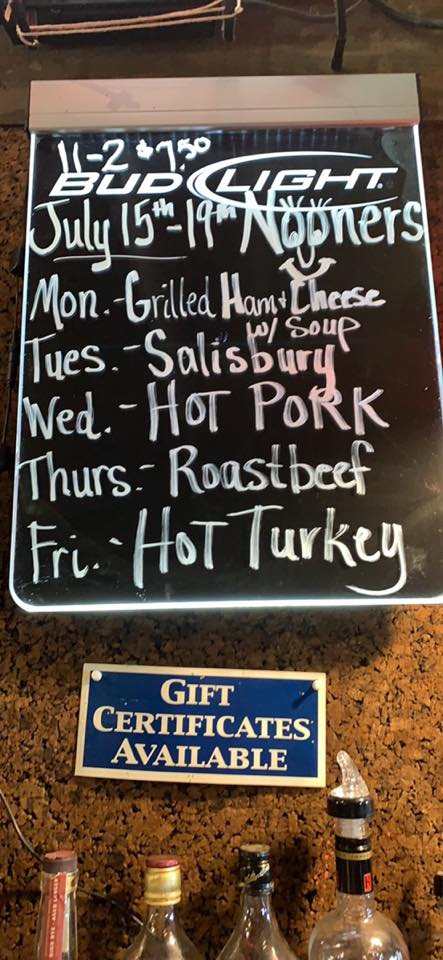 11-2 $7.50
BUD LIGHT
July 15th-19th Nooners
Mon.-Grilled Ham + Cheese
w/ Soup
Tues.-Salisbury
Wed.-HOT PORK
Thurs.-Roastbeef
Fri.-HOT Turkey
GIFT
CERTIFICATES
AVAILABLE